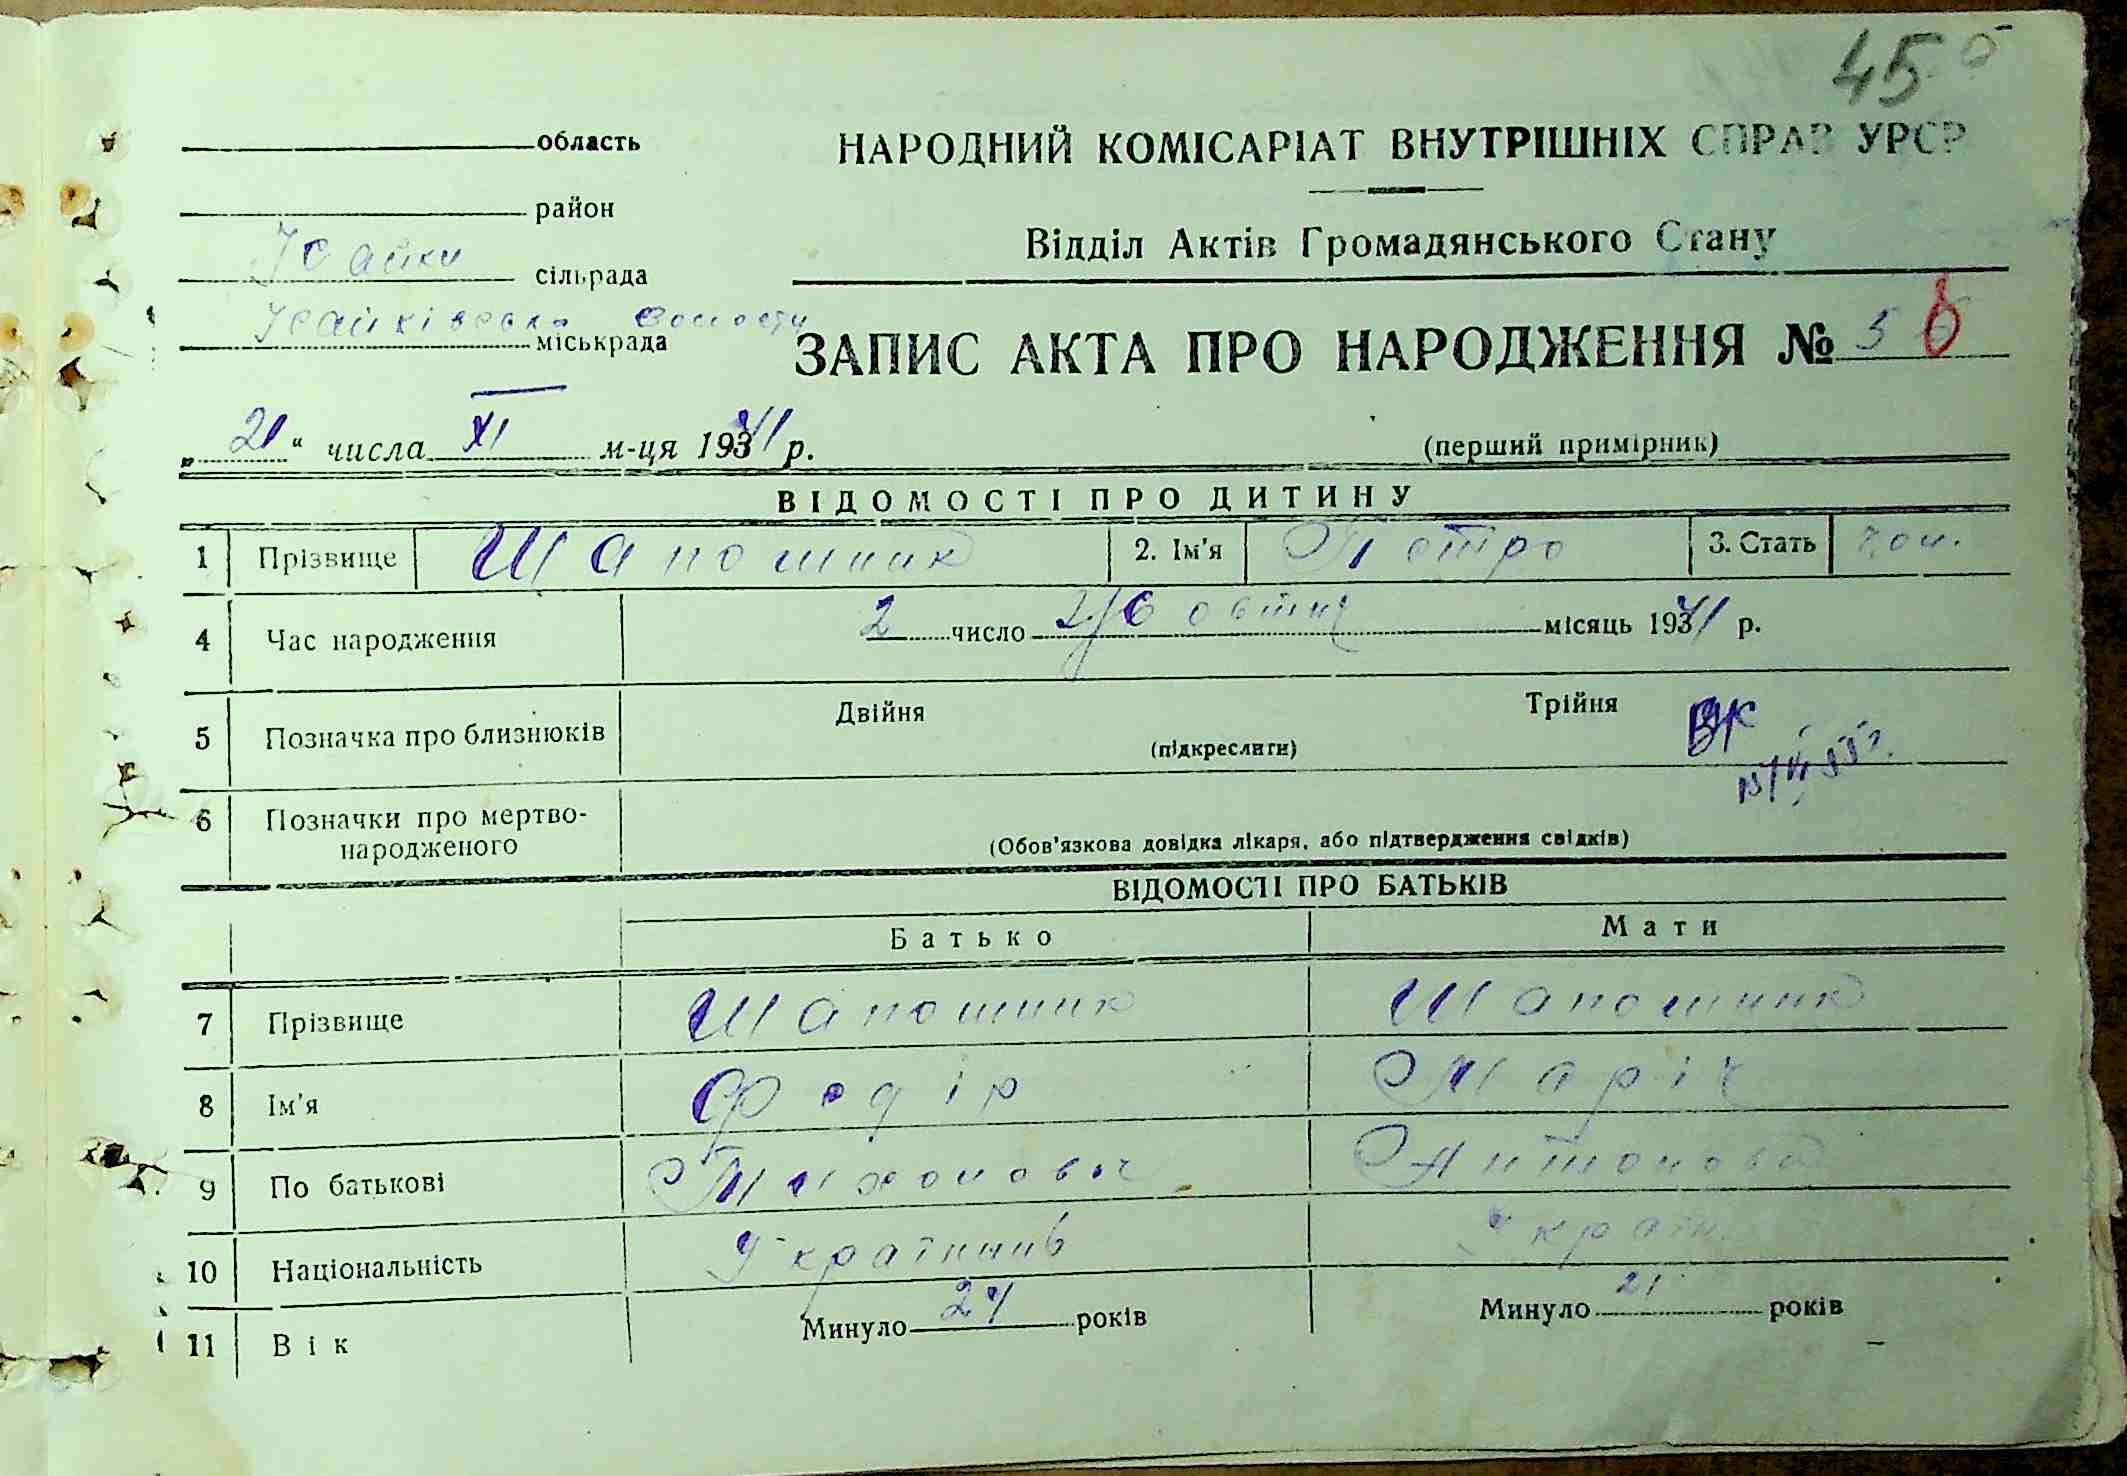 45
область
НАРОДНИЙ КОМІСАРІАТ ВНУТРІШНІХ СПРАВ УРСР
район
Відділ Актів Громадянського Стану
Юсайки сільрада
волости міськрада
ЗАПИС АКТА ПРО НАРОДЖЕННЯ № 5
„21“ числа XI м-ця 1941 р.
(перший примірник)
ВІДОМОСТІ ПРО ДИТИНУ
1 Прізвище Шапошник 2. Ім'я Петро 3. Стать чол.
4 Час народження 2 число Жовтня місяць 1941 р.
5 Позначка про близнюків Двійня (підкреслити) Трійня
ВК
6 Позначки про мертво-
народженого (Обов'язкова довідка лікаря, або підтвердження свідків)
ВІДОМОСТІ ПРО БАТЬКІВ
Батько Мати
7 Прізвище Шапошник Шапошник
8 Ім'я Федір Марія
9 По батькові Тихонович Антонова
10 Національність Українців Україн.
11 Вік Минуло 24 років Минуло 21 років